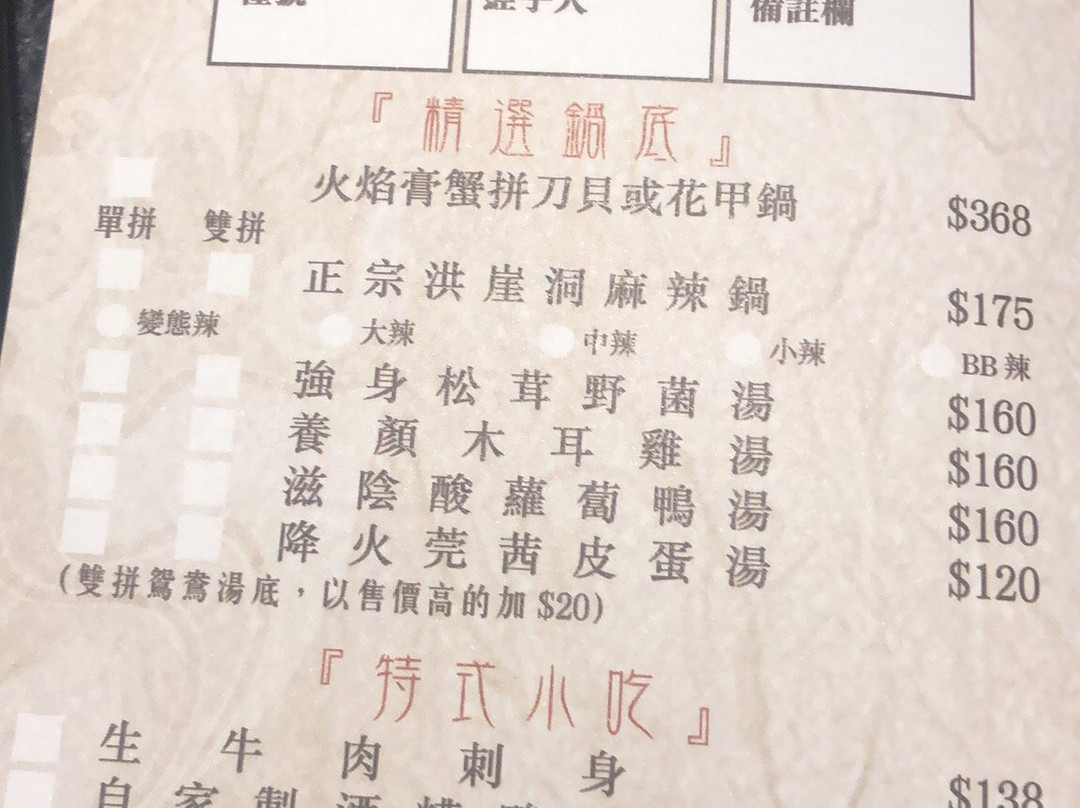 備註欄
『精選鍋底』
火焰膏蟹拼刀貝或花甲鍋 $368
單拼 雙拼
正宗洪崖洞麻辣鍋 $175
變態辣 大辣 中辣 小辣 BB辣
強身松茸野菌湯 $160
養顏木耳雞湯 $160
滋陰酸蘿蔔鴨湯 $160
降火莞茜皮蛋湯 $120
(雙拼鴛鴦湯底，以售價高的加 $20)
『特式小吃』
生牛肉刺身 $138
自家製酒